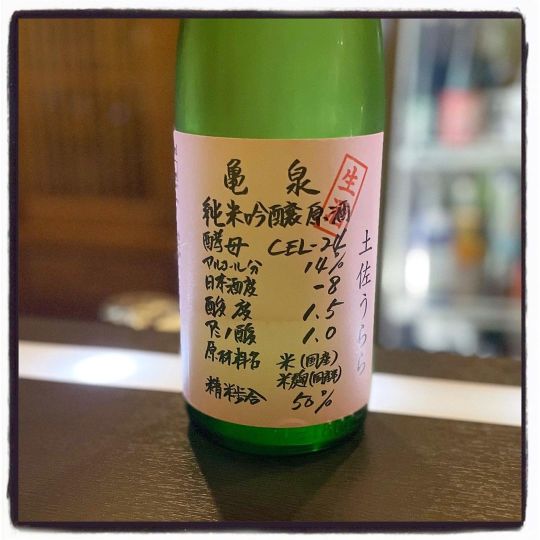 亀泉
生酒
純米吟醸原酒
酵母 CEL-24
アルコール分 14%
日本酒度 -8
酸度 1.5
アミノ酸 1.0
原材料名 米(国産)
米麹(国産米)
精米歩合 50%
土佐うらら